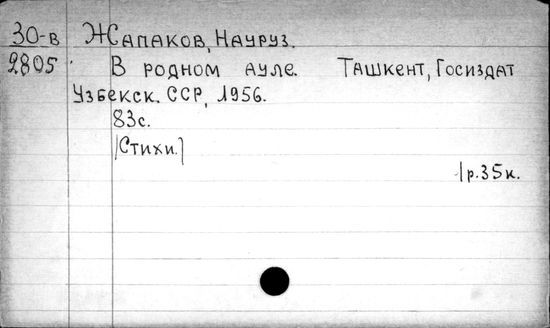 30-в Жапаков, Науруз.
2805 В родном ауле. Ташкент, Госиздат
Узбекск. ССР, 1956.
83с.
[Стихи.]
1р.35к.